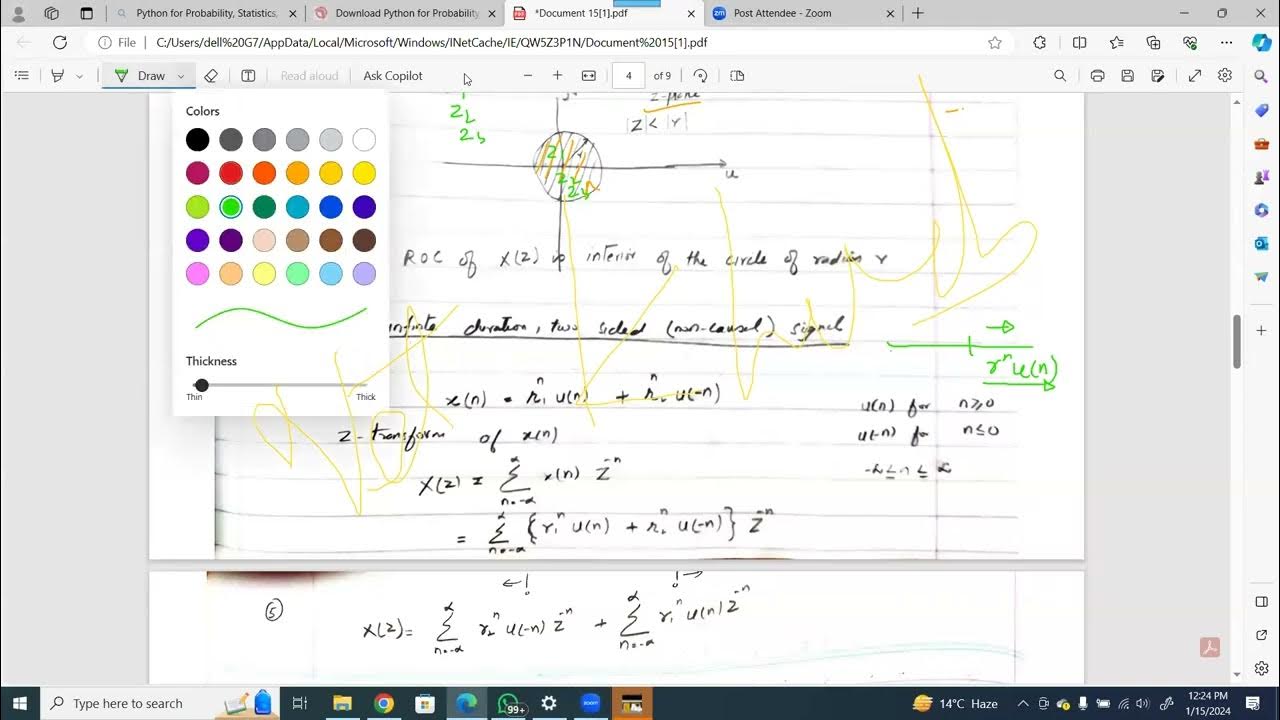 Python for Probability, Statistics,
Download Python for Probability
*Document 15[1].pdf
Post Attendee - Zoom
File
C:/Users/dell%20G7/AppData/Local/Microsoft/Windows/INetCache/IE/QW5Z3P1N/Document%2015[1].pdf
Draw
Read aloud
Ask Copilot
4 of 9
Colors
Thickness
Thin
Thick
z-plane
|z| < |r|
u
ROC of X(z) is interior of the circle of radius r
infinite duration, two sided (non-causal) signal
r^n u(n)
x(n) = r₁^n u(n) + r₂^n u(-n)
u(n) for n≥0
z-transform of x(n)
u(-n) for n≤0
X(z) = ∑_{n=-∞}^{∞} x(n) z^{-n}
-∞ ≤ n ≤ ∞
= ∑_{n=-∞}^{∞} {r₁^n u(n) + r₂^n u(-n)} z^{-n}
⑤
X(z) = ∑_{n=-∞}^{∞} r₂^n u(-n) z^{-n} + ∑_{n=-∞}^{∞} r₁^n u(n) z^{-n}
Type here to search
99+
14°C Haze
12:24 PM
1/15/2024